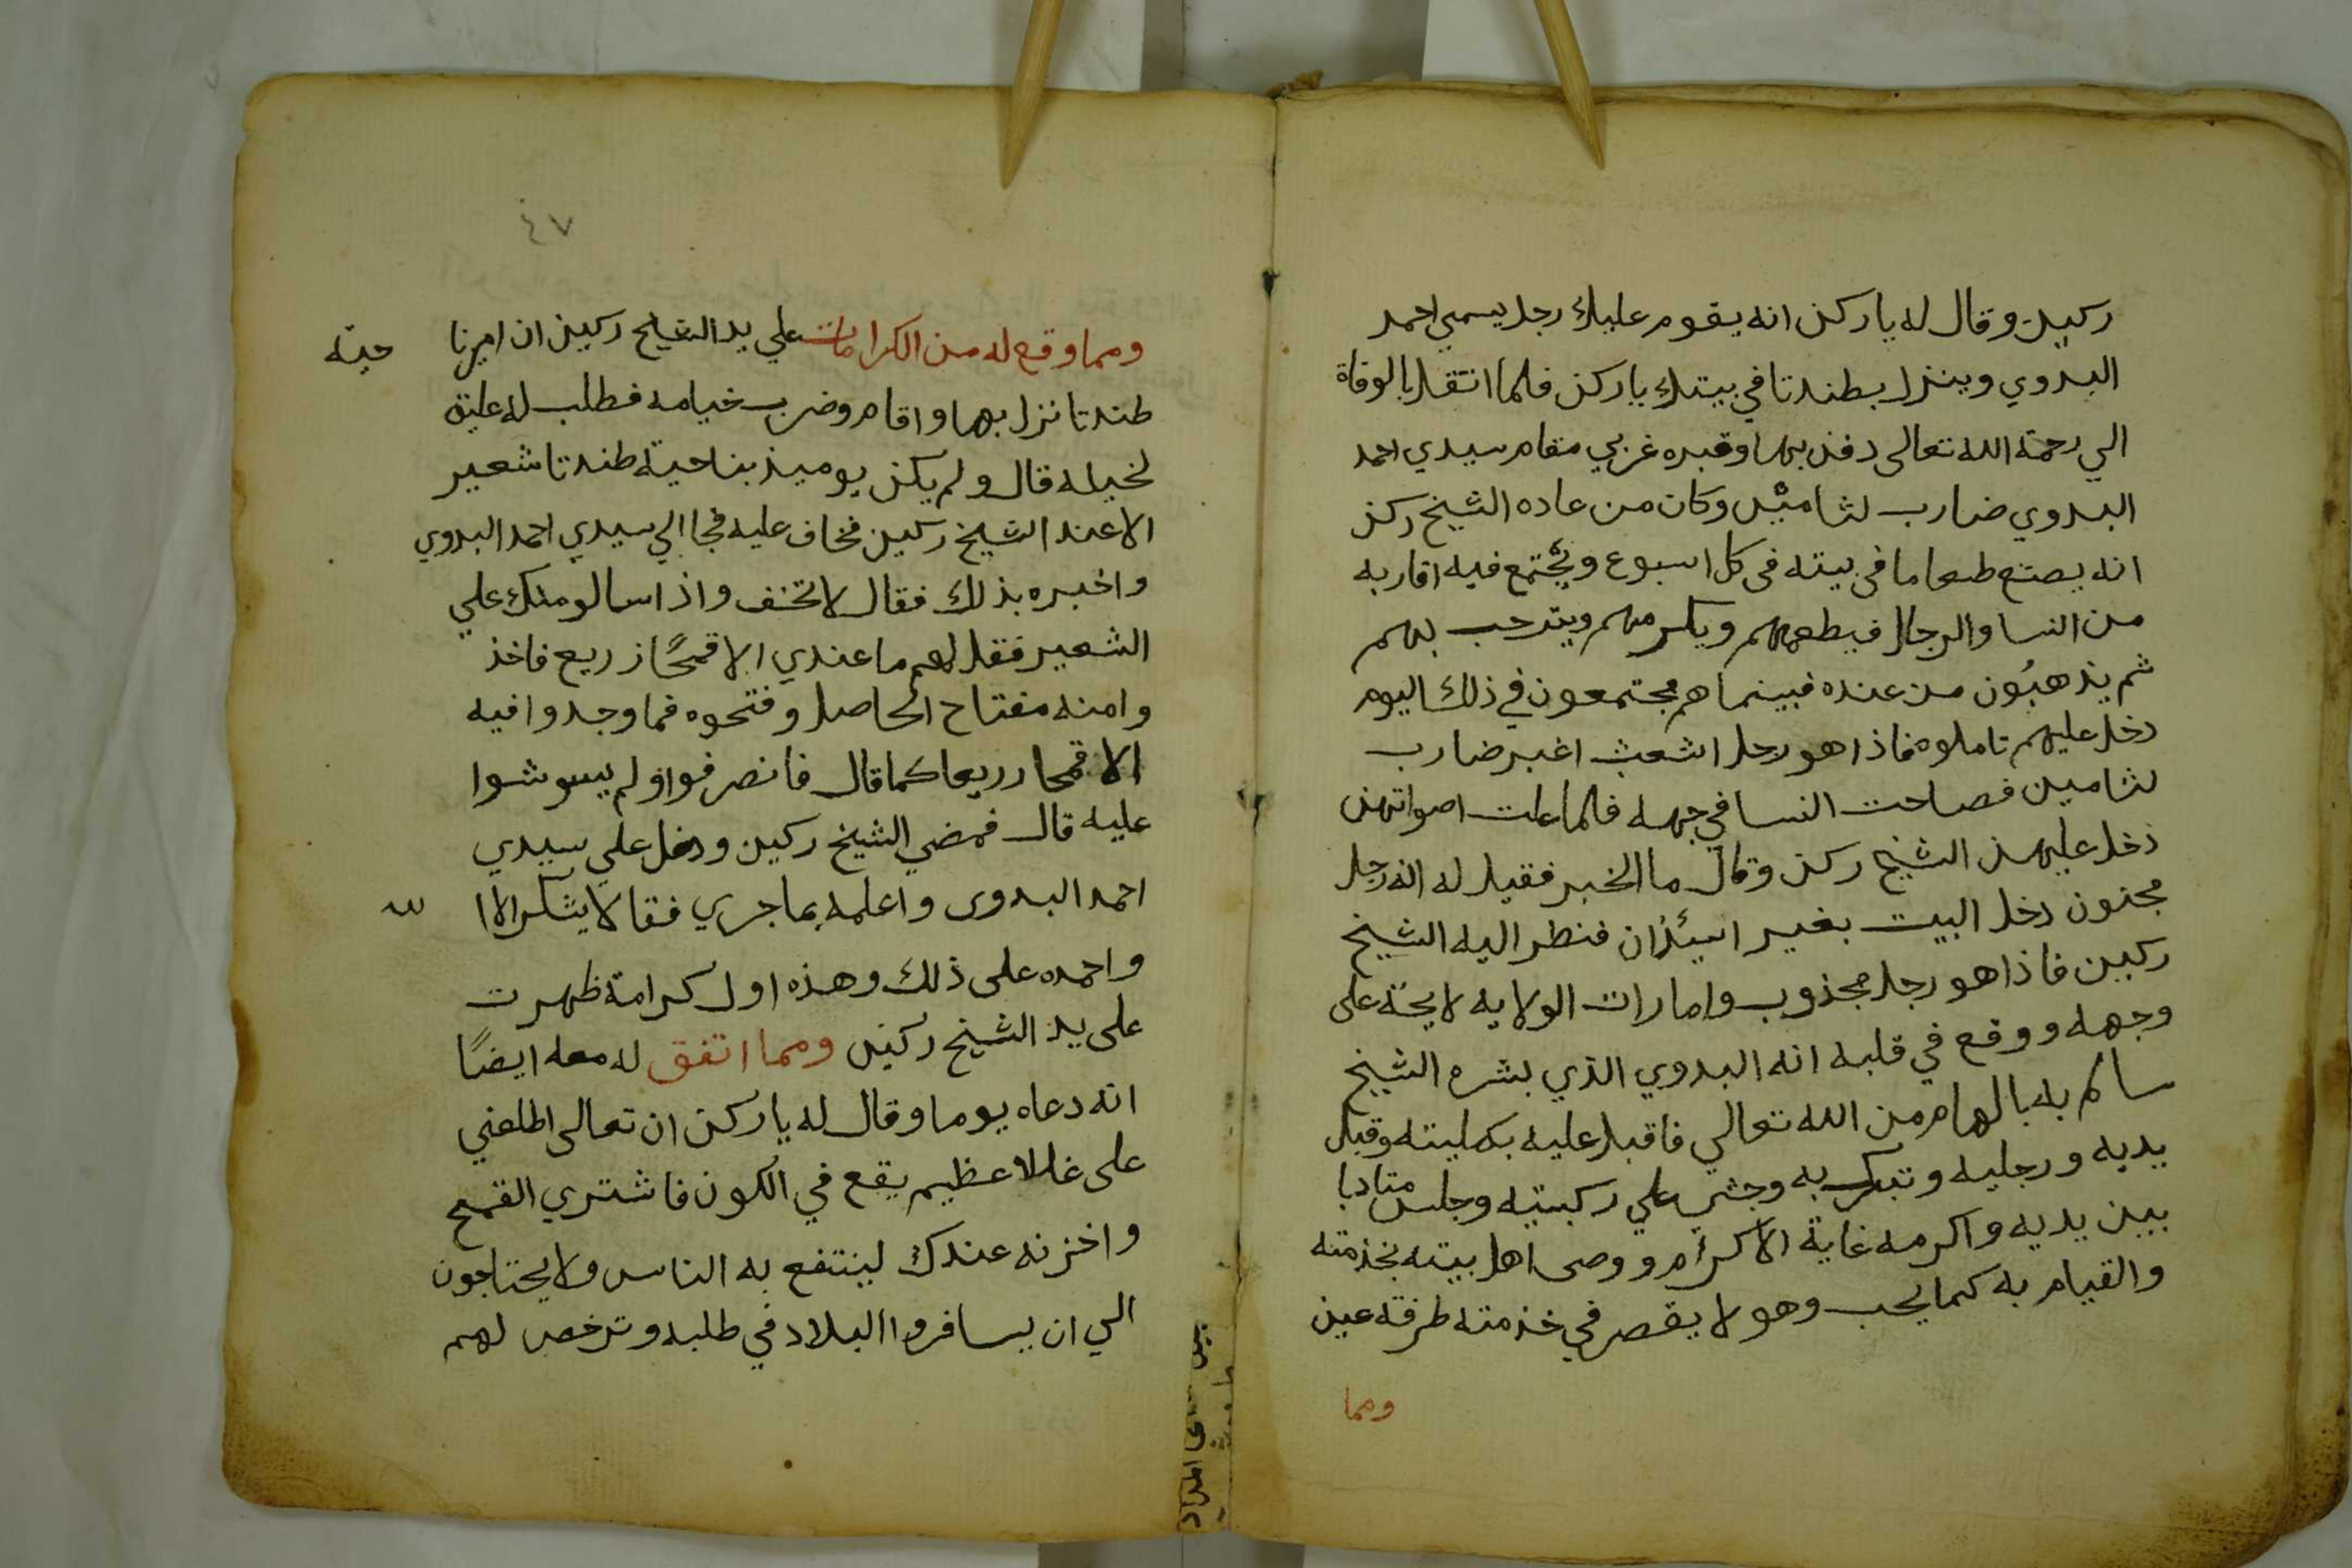 ركين وقال له ياركن انه يقوم عليك رجل يسمي احمد
البدوي وينزل بطندتا في بيتك ياركن فلما انتقل بالوفاة
الي رحمة الله تعالى دفن بها وقبره غربي مقام سيدي احمد
البدوي ضارب لثامين وكان من عاده الشيخ ركن
انه يصنع طعاما في بيته في كل اسبوع ويجتمع فيه اقاربه
من النسا والرجال فيطعمهم ويكرمهم ويترحب بهم
ثم يذهبُون من عنده فبينما هم مجتمعون في ذلك اليوم
دخل عليهم تاملوه فاذا هو رجل اشعث اغبر ضارب
لثامين فصاحت النسا في جهه فلما علت اصواتهن
دخل عليهن الشيخ ركن وقال ما الخبر فقيل له انه رجل
مجنون دخل البيت بغير استئذان فنظر اليه الشيخ
ركين فاذا هو رجل مجذوب وامارات الولايه لايحة على
وجهه ووقع في قلبه انه البدوي الذي بشره الشيخ
سالم به بالهام من الله تعالي فاقبل عليه بكليته وقبل
يديه ورجليه وتبرك به وجثي علي ركبتيه وجلس متادبا
بين يديه واكرمه غاية الاكرام ووصى اهل بيته بخدمته
والقيام به كما يجب وهو لا يقصر في خدمته طرفة عين
ومما
٤٧
ومما وقع له من الكرامات علي يد الشيخ ركين ان اميرنا حية
طندتا نزل بها واقام وضرب خيامه فطلب له عليق
لخيله قال ولم يكن يوميذ بناحية طندتا شعير
الا عند الشيخ ركين فخاف عليه فجا الي سيدي احمد البدوي
واخبره بذلك فقال لا تخف واذا سالو منك علي
الشعير فقل لهم ما عندي الا قمحًا زريع فاخذ
وا منه مفتاح الحاصل وفتحوه فما وجدوا فيه
الا قمحا زريعا كما قال فانصرفوا ولم يسوشوا
عليه قال فمضي الشيخ ركين ودخل علي سيدي
احمد البدوى واعلمه بما جري فقال لا يشكر الا ا لله
واحمده على ذلك وهذه اول كرامة ظهرت
على يد الشيخ ركين ومما اتفق له معه ايضًا
انه دعاه يوما وقال له ياركن ان تعالى اطلعني
على غللا عظيم يقع في الكون فاشتري القمح
واخزنه عندك لينتفع به الناس ولا يحتاجون
الي ان يسافروا البلاد في طلبه وترخص لهم